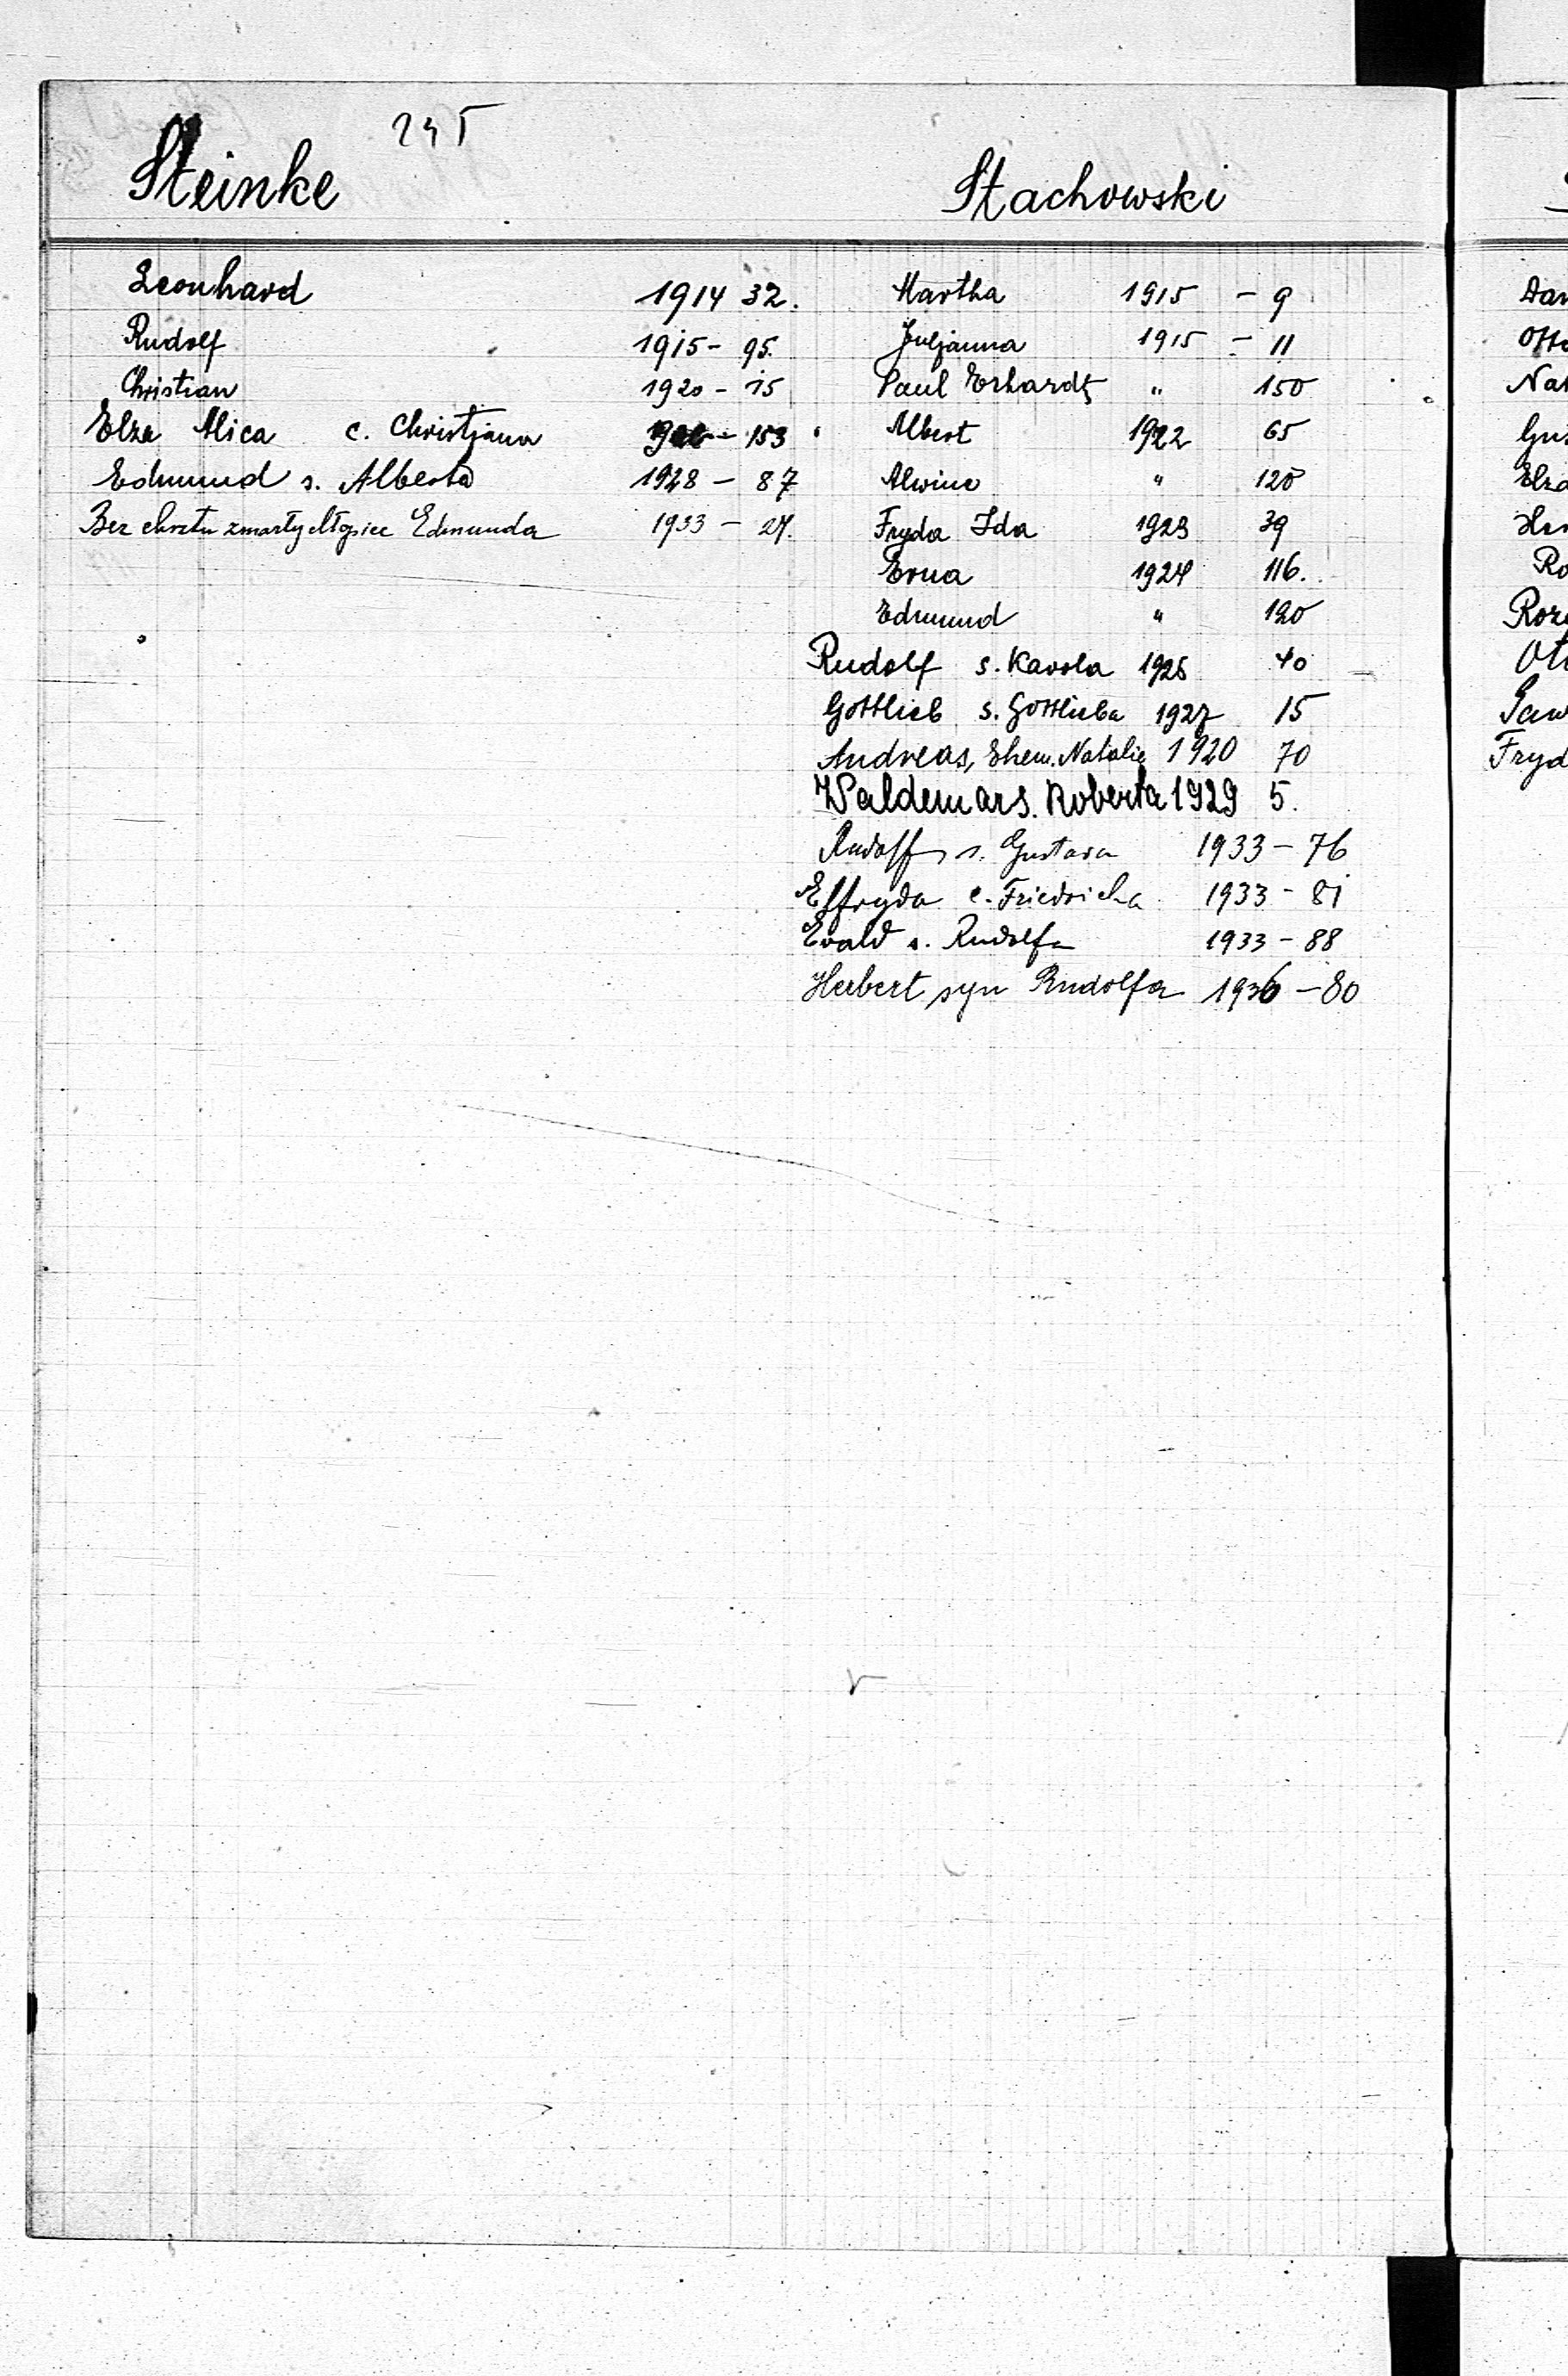 245
Steinke
Leonhard 1914 32.
Rudolf 1915 - 95.
Christian 1920 - 15
Elza Alica c. Christjana - 153
Edmund s. Alberta 1928 - 87
Bez chrztu zmarły chłopiec Edmunda 1933 - 27.
Stachowski
Martha 1915 - 9
Juljanna 1915 - 11
Paul Erhardt " 150
Albert 1922 65
Alwine " 120
Fryda Ida 1923 39
Erna 1924 116.
Edmund " 120
Rudolf s. Karola 1925 40
Gottlieb s. Gottlieba 1927 15
Andreas, Ehem. Natalie 1920 70
Waldemar s. Roberta 1929 5.
Rudolf s. Gustava 1933 - 76
Elfryda c. Friedricha 1933 - 81
Evald s. Rudolfa 1933 - 88
Herbert syn Rudolfa 1936 - 80
Otto
Nat
Gus
Elza
Ro
Roz
Ott
Fryd